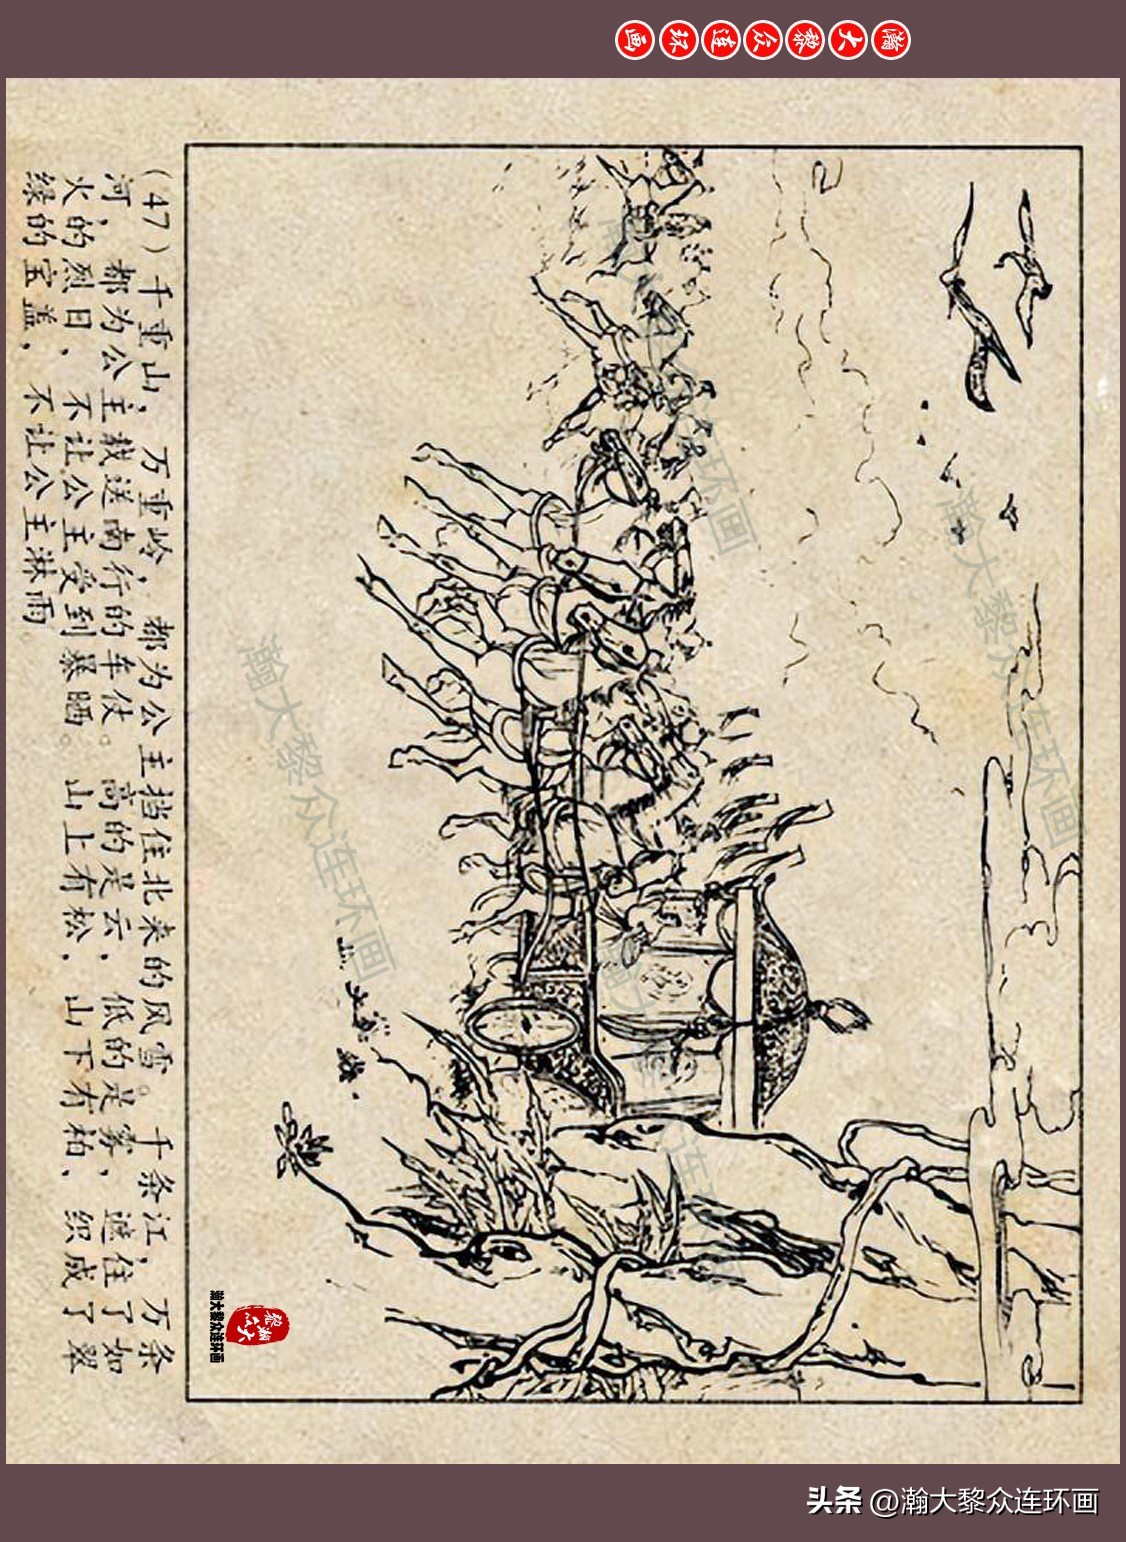 瀚大黎众连环画
瀚大黎众连环画
瀚大黎众连环画
瀚大黎众连环画
(47)千重山，万重岭，都为公主挡住北来的风雪。千条江，万条
河，都为公主载送南行的车仗。高的是云，低的是雾，遮住了如
火的烈日，不让公主受到暴晒。山上有松，山下有柏，织成了翠
绿的宝盖，不让公主淋雨。
头条 @瀚大黎众连环画